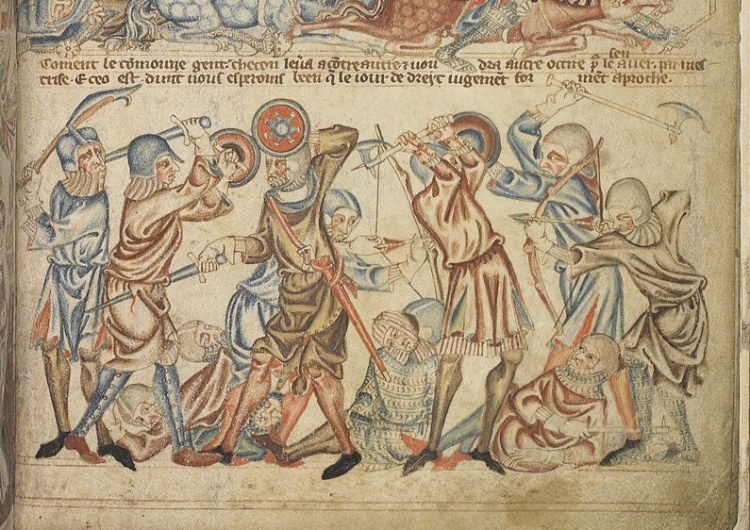 Coment le comoune gent checon leva acontre autre e vou dra autre occire p le aver par mes
trise. E ceo est dunt nous esperoms been q le iour de dreyt iugement for ment aproche.